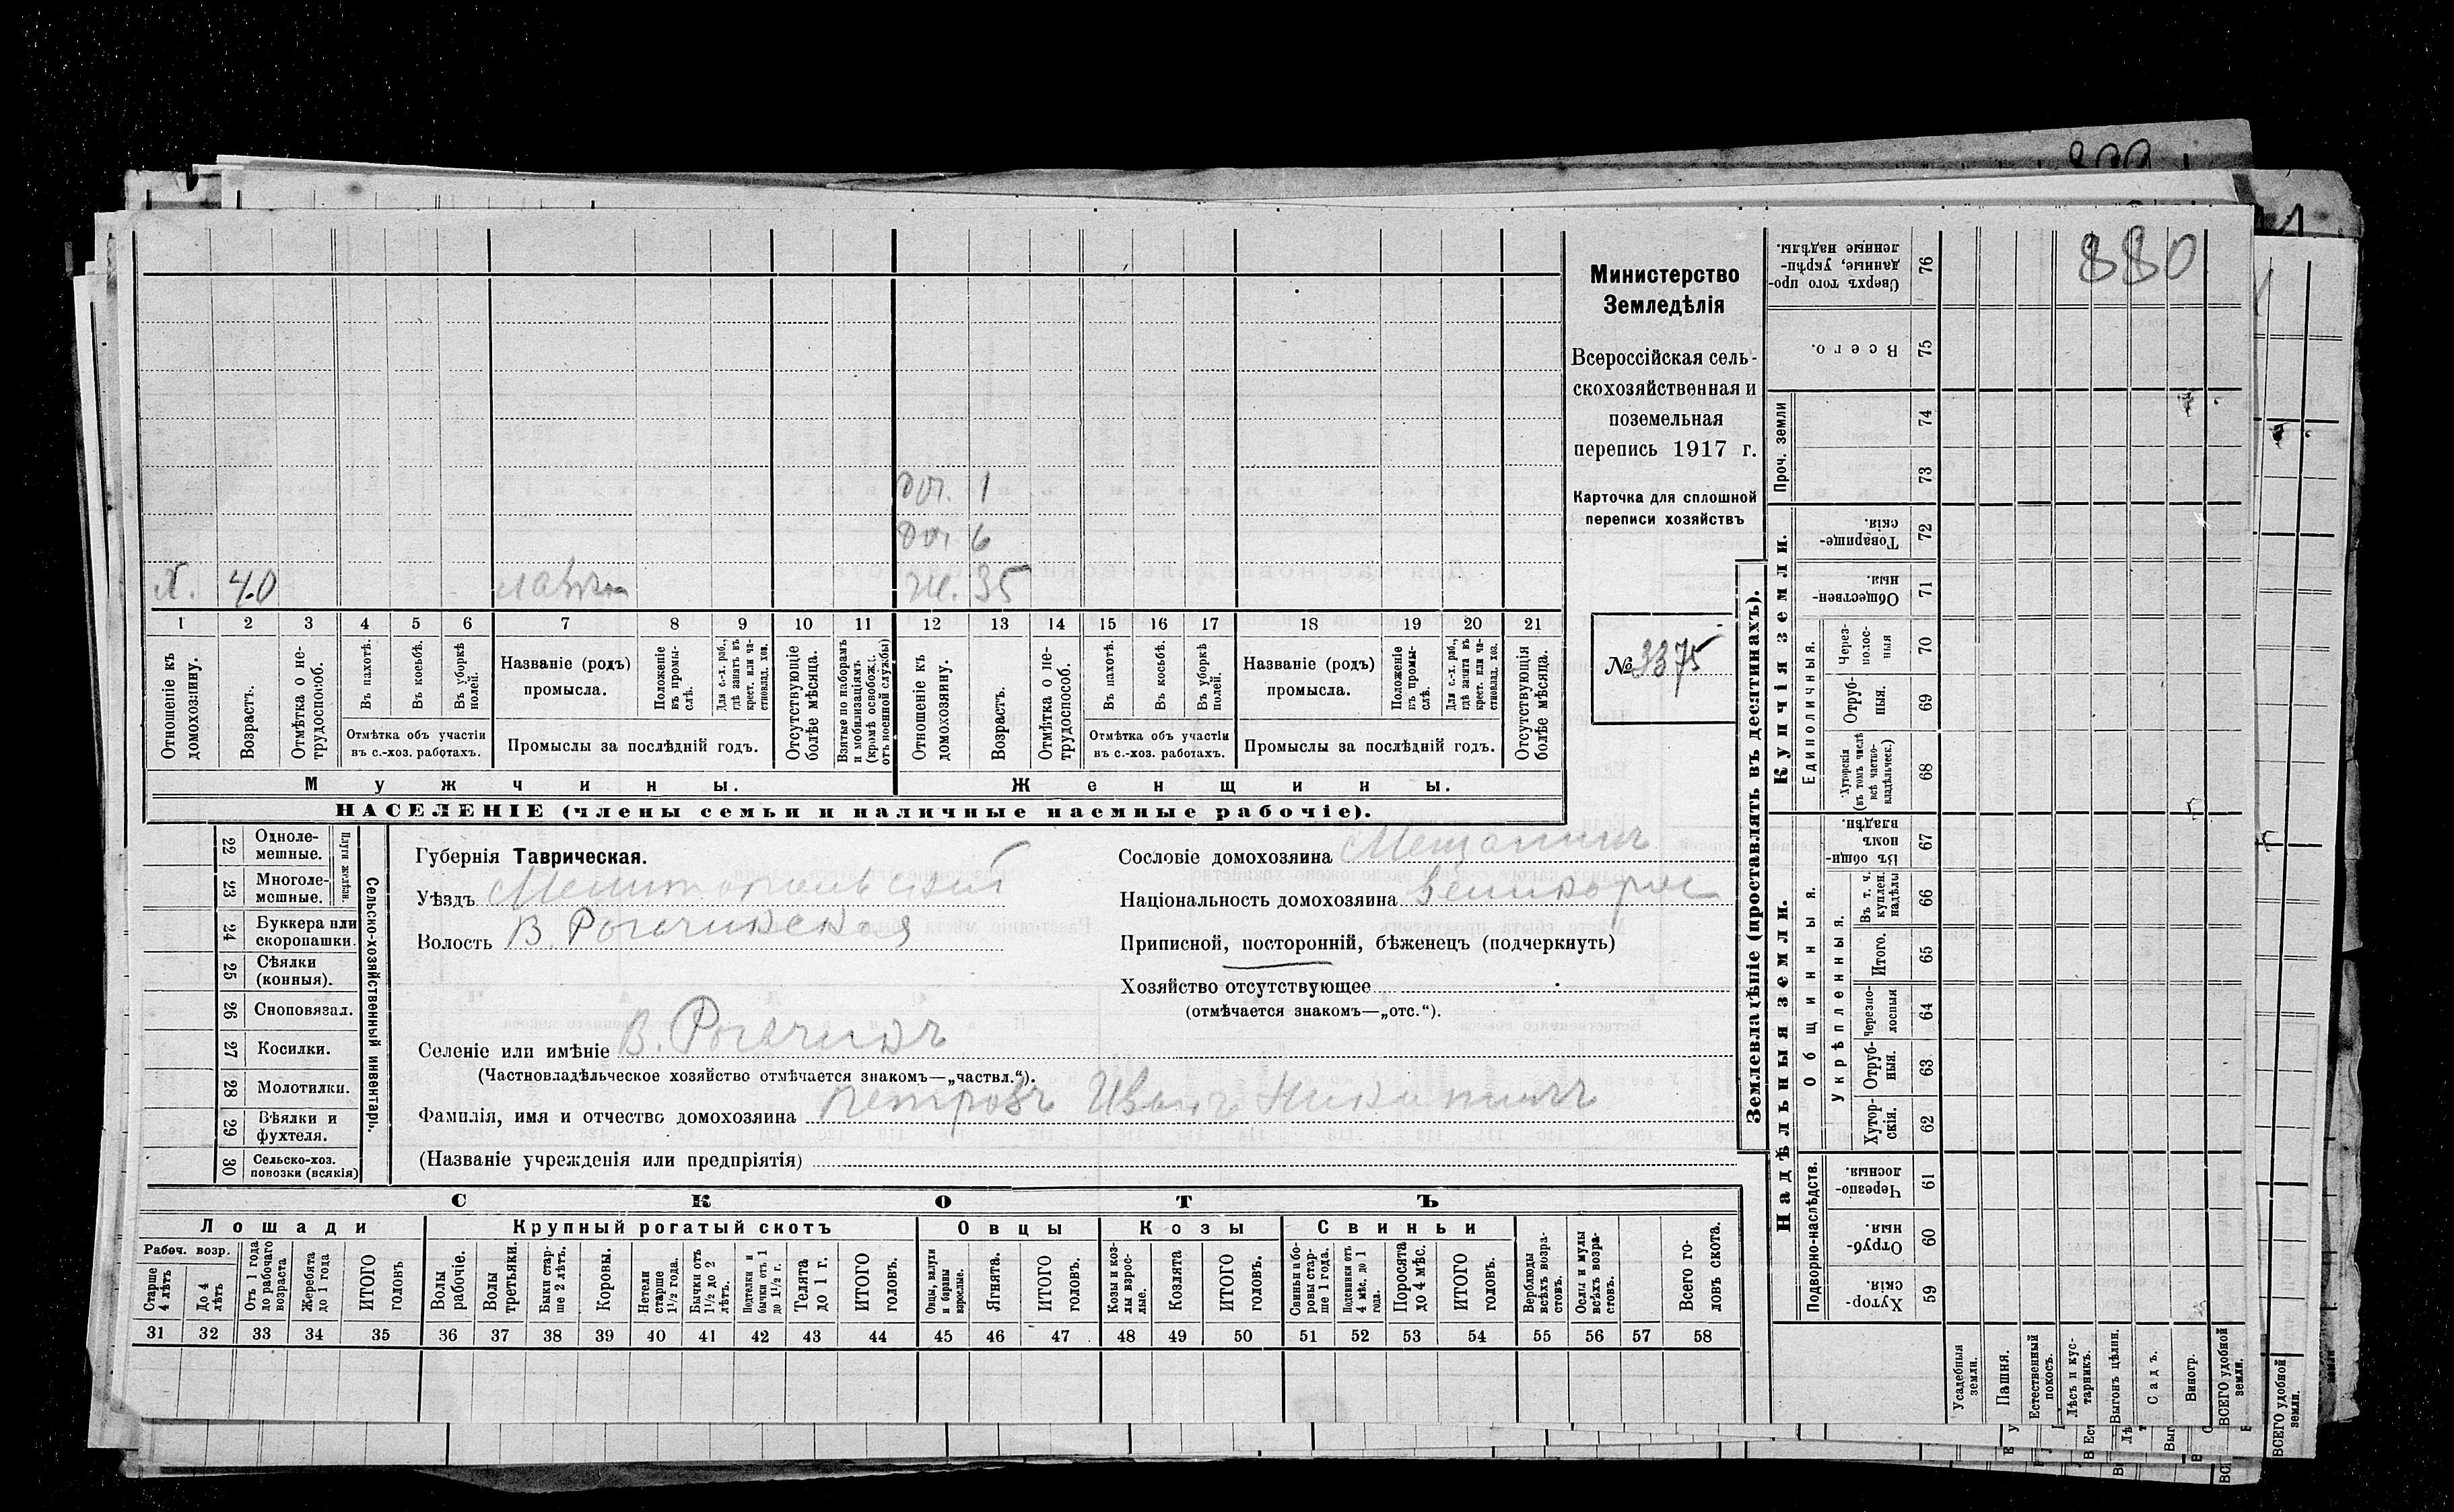 880
Министерство
Земледѣлія
Всероссійская сель-
скохозяйственная и
поземельная
перепись 1917 г.
Карточка для сплошной
переписи хозяйствъ
№ 3375
доч. 1
доч. 6
х. 40
ж. 35
1 2 3 4 5 6 7 8 9 10 11 12 13 14 15 16 17 18 19 20 21
Отношеніе къ домохозяину.
Возрастъ.
Отмѣтка о не-трудоспособ.
Въ пахотѣ.
Въ косьбѣ.
Въ уборкѣ полей.
Отмѣтка объ участіи
въ с.-хоз. работахъ.
Названіе (родъ)
промысла.
Положеніе въ промы-слѣ.
Для с.-х. раб., гдѣ занятъ въ крест. или ча-стновлад. хоз.
Промыслы за послѣдній годъ.
Отсутствующіе болѣе мѣсяца.
Взятые по наборамъ и мобилизаціямъ (кромѣ освобожд. отъ военной службы)
Отношеніе къ домохозяину.
Возрастъ.
Отмѣтка о не-трудоспособ.
Въ пахотѣ.
Въ косьбѣ.
Въ уборкѣ полей.
Отмѣтка объ участіи
въ с.-хоз. работахъ.
Названіе (родъ)
промысла.
Положеніе въ промы-слѣ.
Для с.-х. раб., гдѣ занята въ крест. или ча-стновлад. хоз.
Промыслы за послѣдній годъ.
Отсутствующія болѣе мѣсяца.
Мужчины.
Женщины.
НАСЕЛЕНІЕ (члены семьи и наличные наемные рабочіе).
22 Одноле-мешные.
23 Многоле-мешные.
Плуги желѣзн.
24 Буккера или скоропашки.
25 Сѣялки (конныя).
26 Сноповязал.
27 Косилки.
28 Молотилки.
29 Вѣялки и фухтеля.
30 Сельско-хоз. повозки (всякія)
Сельско-хозяйственный инвентарь.
Губернія Таврическая.
Уѣздъ Мелитопольскій
Волость В. Рогачикская
Селеніе или имѣніе В. Рогачикъ
(Частновладѣльческое хозяйство отмѣчается знакомъ—„частвл.“).
Фамилія, имя и отчество домохозяина Петровъ Иванъ Никитичъ
(Названіе учрежденія или предпріятія)
Сословіе домохозяина Мещанинъ
Національность домохозяина Великорос
Приписной, посторонній, бѣженецъ (подчеркнуть)
Хозяйство отсутствующее
(отмѣчается знакомъ—„отс.“).
СКОТЪ
Лошади
Крупный рогатый скотъ
Овцы
Козы
Свиньи
Рабоч. возр.
Старше 4 лѣтъ
До 4 лѣтъ
Отъ 1 года до рабочаго возраста
Жеребята до 1 года
ИТОГО головъ
Волы рабочіе.
Волы третьяки.
Быки стар-ше 2 лѣтъ.
Коровы.
Нетели старше 1½ года.
Бычки отъ 1½ до 2 лѣтъ.
Подтелки и бычки отъ 1 до 1½ г.
Телята до 1 г.
ИТОГО головъ.
Овцы, валухи и бараны взрослые.
Ягнята.
ИТОГО головъ.
Козы и коз-лы взрос-лые.
Козлята
ИТОГО головъ.
Свиньи бо-ровы стар-ше 1 года.
Подсвинки отъ 4 мѣс. до 1 года.
Поросята до 4 мѣс.
ИТОГО головъ.
Верблюды всѣхъ возра-стовъ.
Ослы и мулы всѣхъ возра-стовъ.
Всего го-ловъ скота.
31 32 33 34 35 36 37 38 39 40 41 42 43 44 45 46 47 48 49 50 51 52 53 54 55 56 57 58
Землевладѣніе (проставлять въ десятинахъ).
Купчія земли.
Надѣльныя земли.
Сверхъ того про-данные, укрѣп-ленные надѣлы. 76
Всего. 75
Проч. земли
74
73
Товарище-скія. 72
Обществен-ныя. 71
Единоличныя.
Через-полос-ныя 70
Отруб-ныя. 69
Хуторскія (въ томъ числѣ всѣ частно-владѣльческ.) 68
Общинныя.
Въ общи-номъ владѣн. 67
Укрѣпленныя.
Въ т. ч. куплен. надѣлы 66
Итого. 65
Черезпо-лосныя 64
Отруб-ныя. 63
Хутор-скія. 62
Подворно-наслѣдств.
Черезпо-лосныя. 61
Отруб-ныя. 60
Хутор-скія. 59
Усадебныя земли.
Пашня.
Естественный покосъ.
Лѣсъ и кус-тарникъ.
Выгонъ цѣлин.
Садъ.
Виногр.
ВСЕГО удобной земли.
ВСЕГО удобной земли.